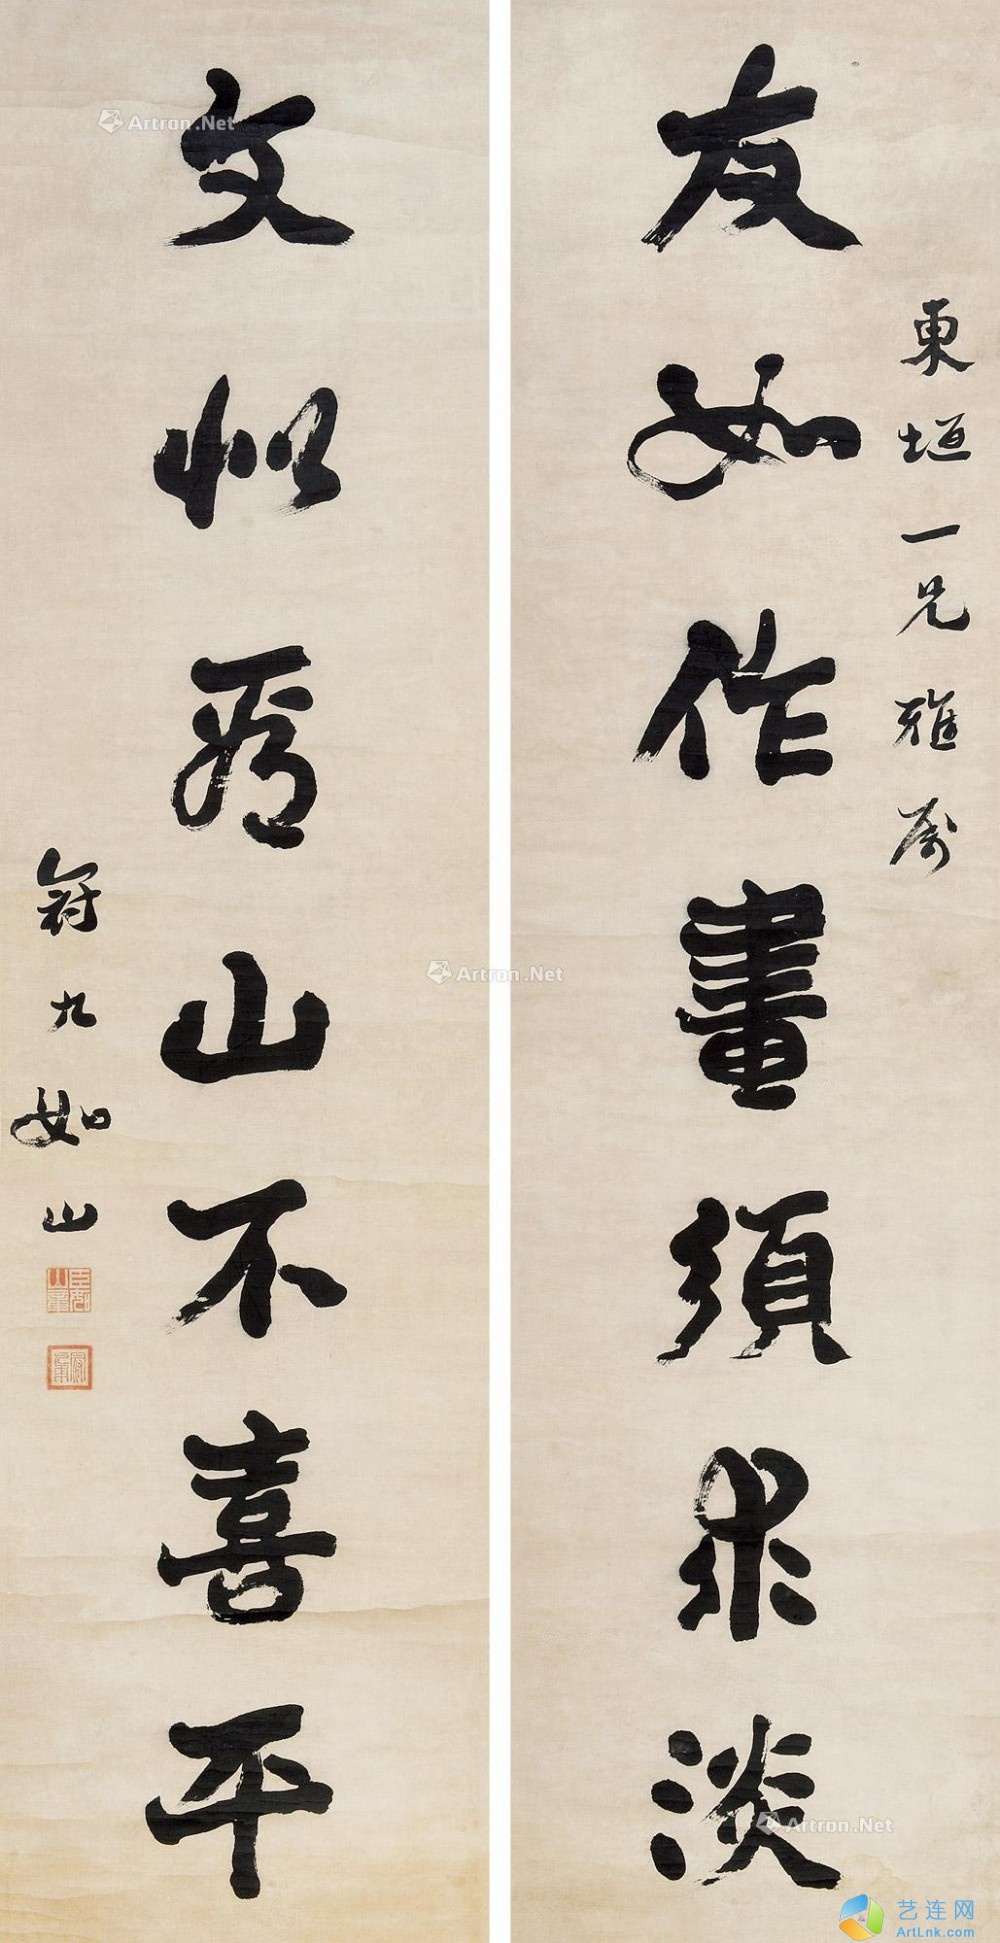 東垣一兄雅属
友如作畫須求淡
文似看山不喜平
冠九如山
Artron.Net
Artron.Net
Artron.Net
艺连网
ArtLnk.com